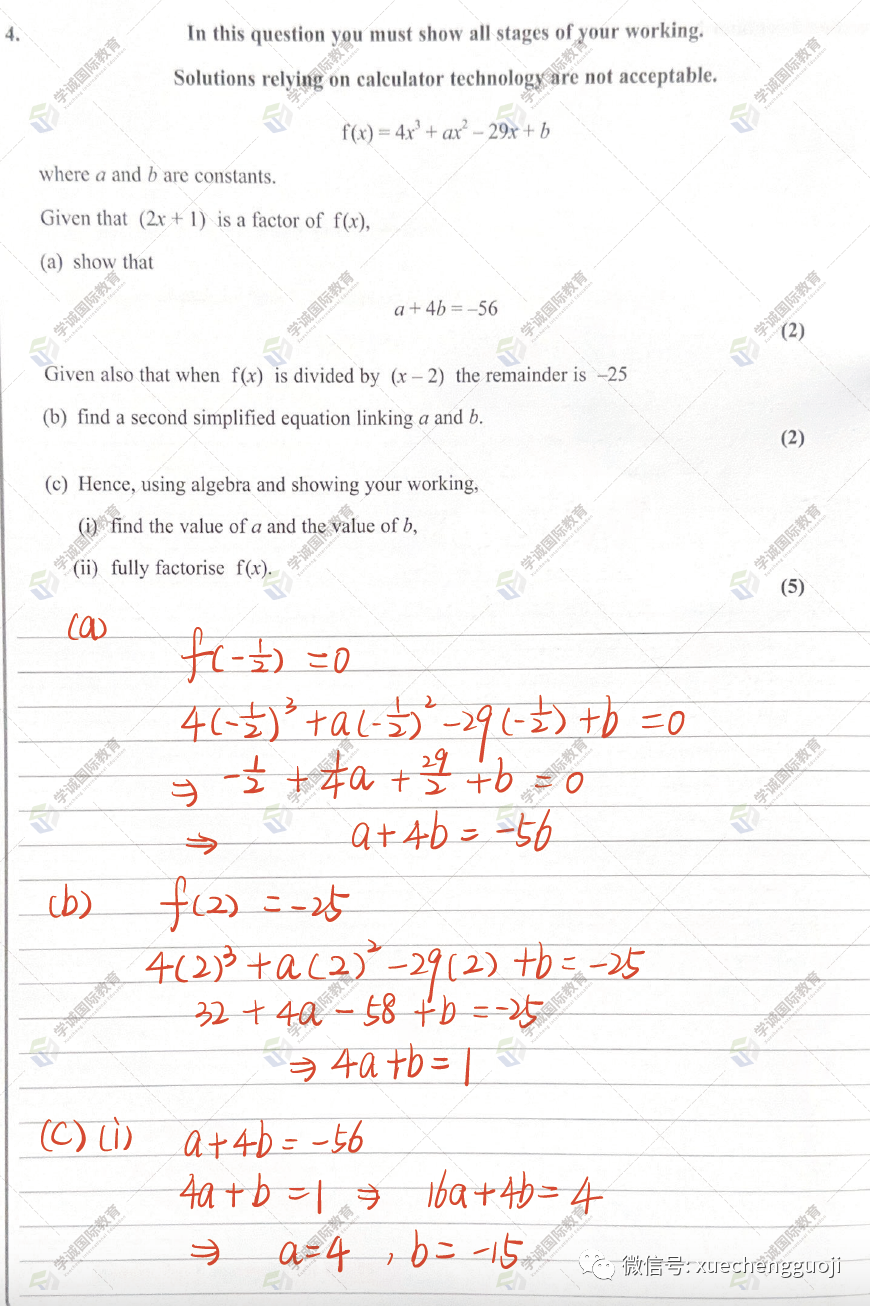 4.
In this question you must show all stages of your working.
Solutions relying on calculator technology are not acceptable.
f(x) = 4x³ + ax² – 29x + b
where a and b are constants.
Given that (2x + 1) is a factor of f(x),
(a) show that
a + 4b = –56
(2)
Given also that when f(x) is divided by (x – 2) the remainder is –25
(b) find a second simplified equation linking a and b.
(2)
(c) Hence, using algebra and showing your working,
(i) find the value of a and the value of b,
(ii) fully factorise f(x).
(5)
(a)
f(-1/2) = 0
4(-1/2)³ + a(-1/2)² - 29(-1/2) + b = 0
⇒ -1/2 + 1/4a + 29/2 + b = 0
⇒ a + 4b = -56
(b) f(2) = -25
4(2)³ + a(2)² - 29(2) + b = -25
32 + 4a - 58 + b = -25
⇒ 4a + b = 1
(C) (i) a + 4b = -56
4a + b = 1 ⇒ 16a + 4b = 4
⇒ a = 4 , b = -15
微信号: xuechengguoji
学诚国际教育